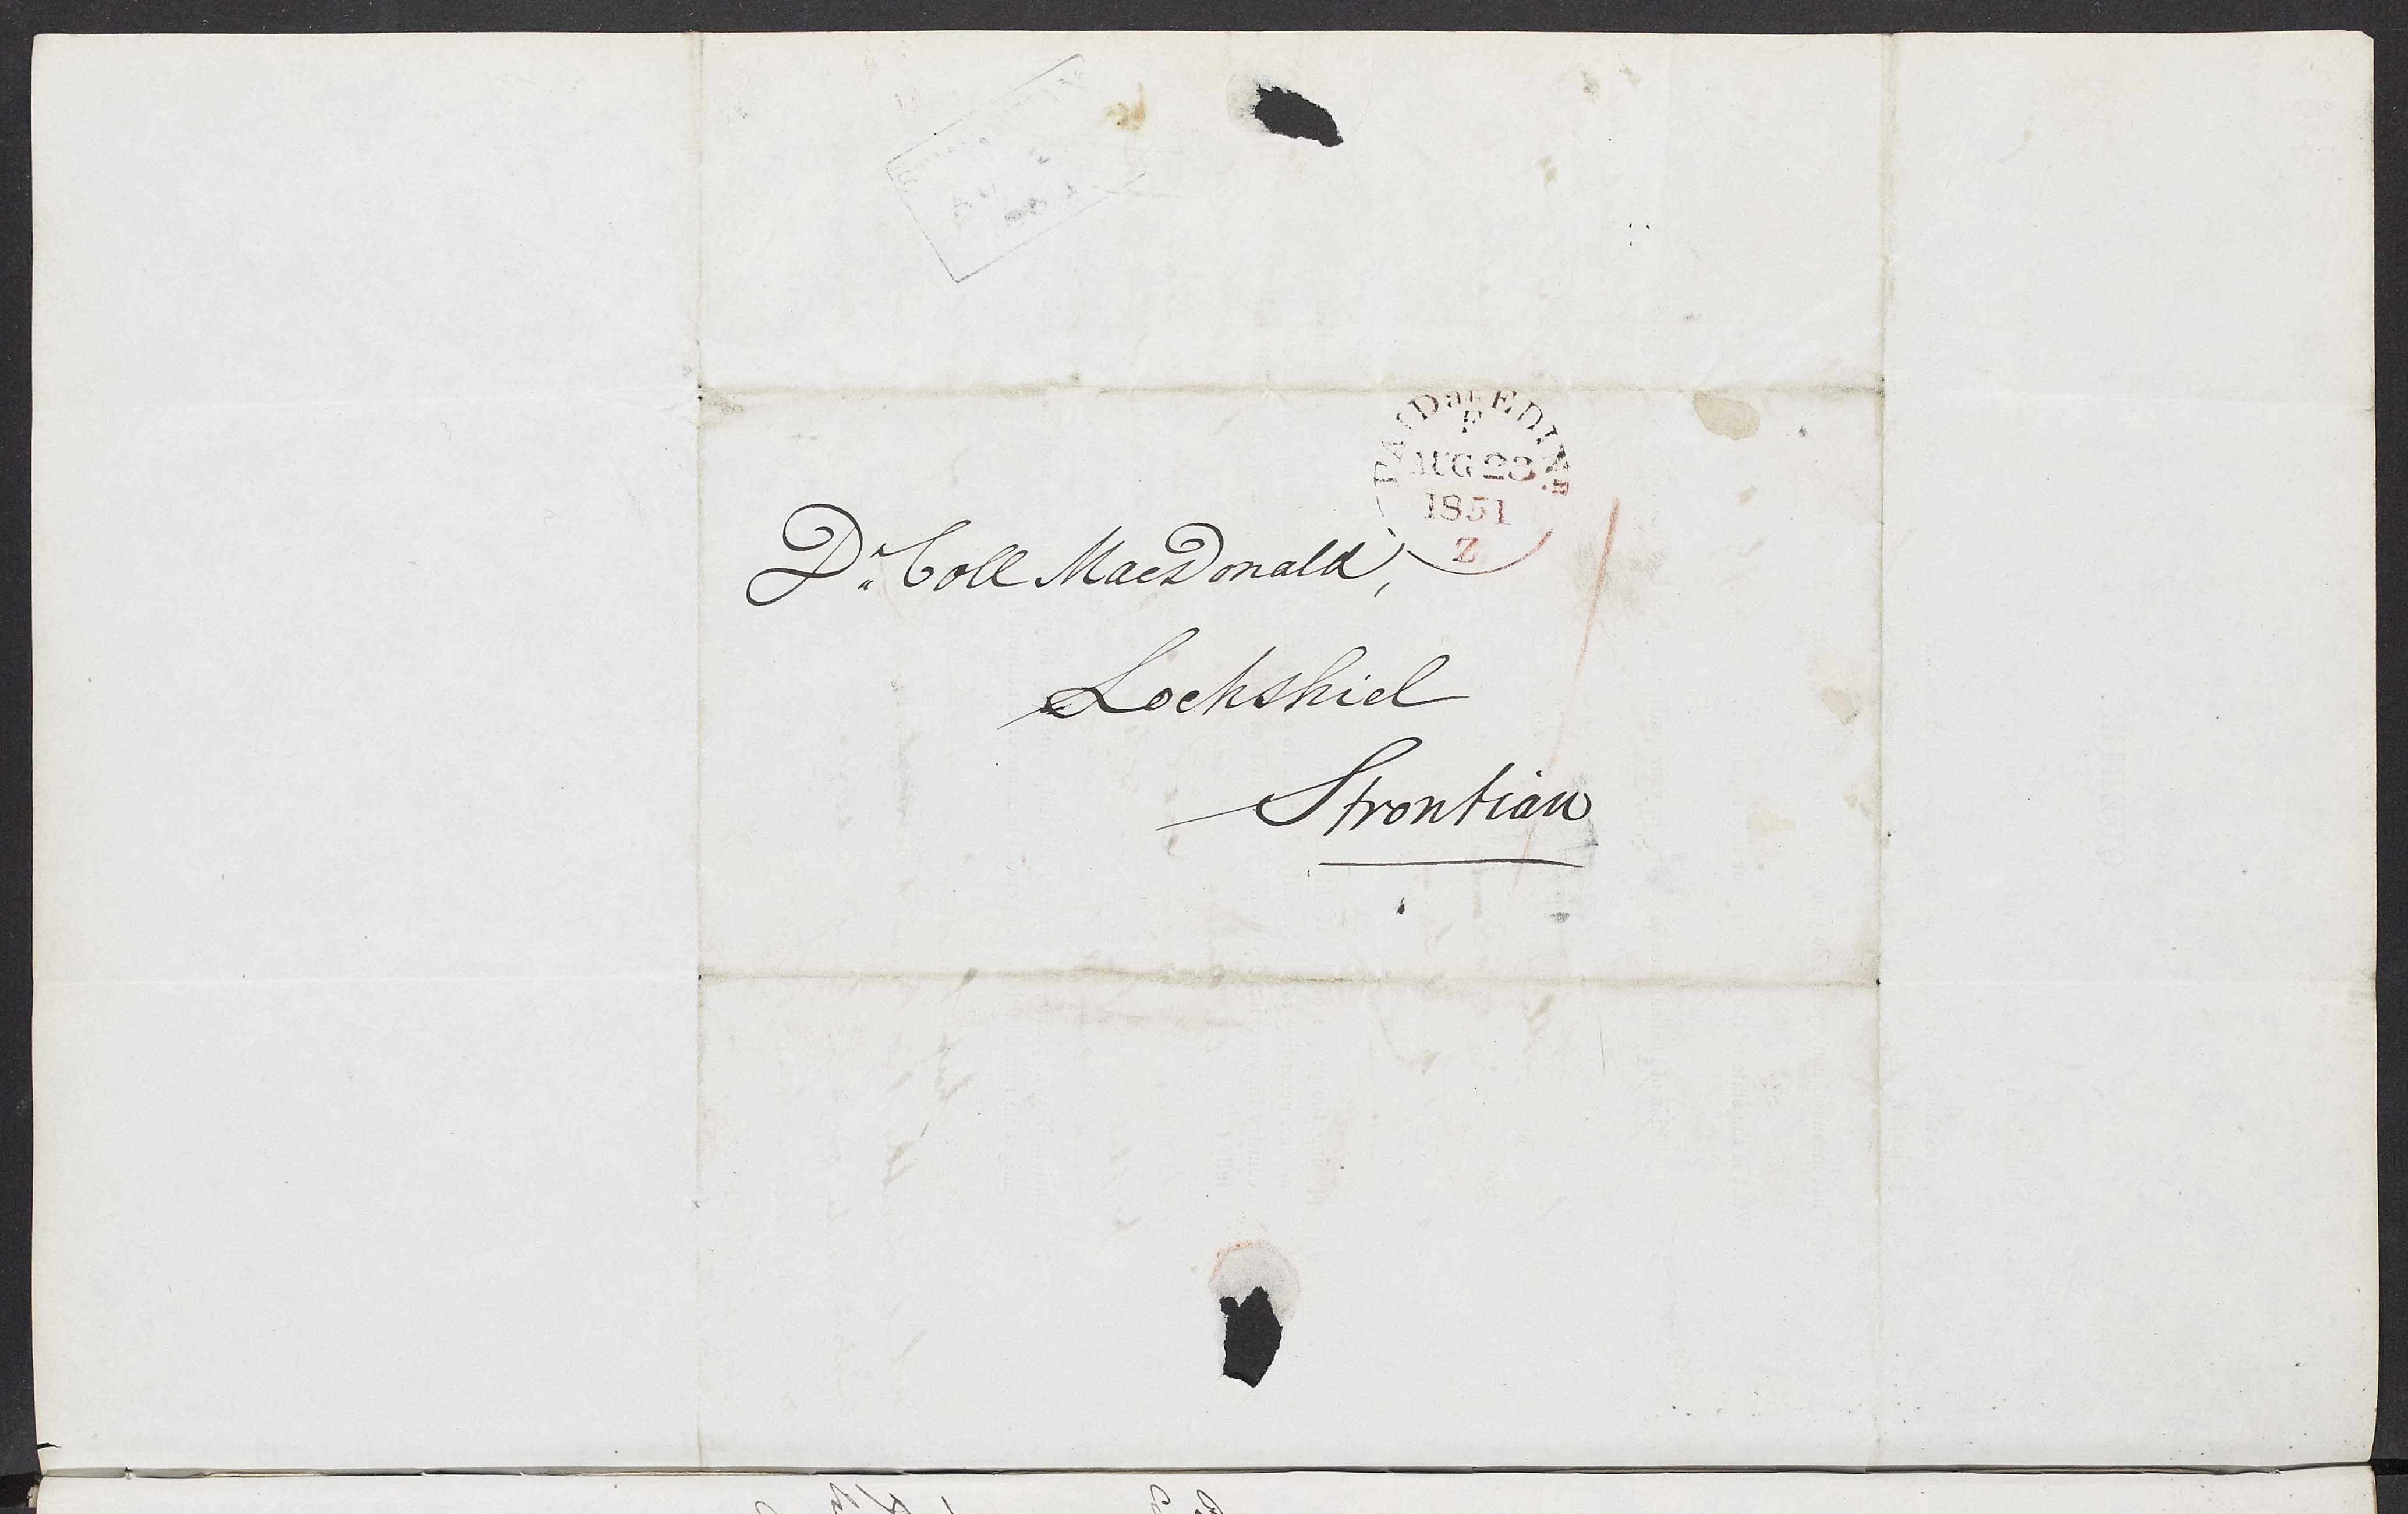 PAID at EDINR
F
AUG 23
1851
Z
Dr. Coll MacDonald,
Lochshiel
Strontian